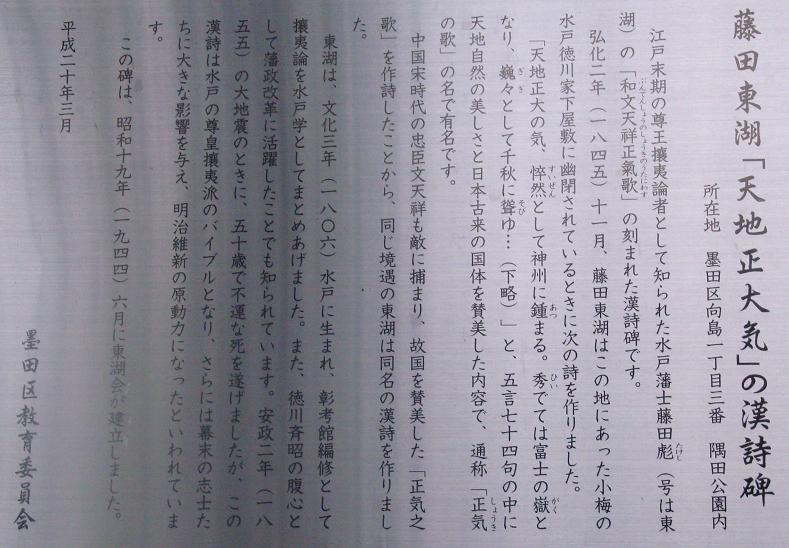 藤田東湖「天地正大気」の漢詩碑
所在地 墨田区向島一丁目三番 隅田公園内
江戸末期の尊王攘夷論者として知られた水戸藩士藤田彪（号は東
湖）の「和文天祥正氣歌」の刻まれた漢詩碑です。
弘化二年（一八四五）十一月、藤田東湖はこの地にあった小梅の
水戸徳川家下屋敷に幽閉されているときに次の詩を作りました。
「天地正大の気、粋然として神州に鍾まる。秀でては富士の嶽と
なり、巍々として千秋に聳ゆ…（下略）」と、五言七十四句の中に
天地自然の美しさと日本古来の国体を賛美した内容で、通称「正気
の歌」の名で有名です。
中国宋時代の忠臣文天祥も敵に捕まり、故国を賛美した「正気之
歌」を作詩したことから、同じ境遇の東湖は同名の漢詩を作りまし
た。
東湖は、文化三年（一八〇六）水戸に生まれ、彰考館編修として
攘夷論を水戸学としてまとめあげました。また、徳川斉昭の腹心と
して藩政改革に活躍したことでも知られています。安政二年（一八
五五）の大地震のときに、五十歳で不運な死を遂げましたが、この
漢詩は水戸の尊皇攘夷派のバイブルとなり、さらには幕末の志士た
ちに大きな影響を与え、明治維新の原動力になったといわれていま
す。
この碑は、昭和十九年（一九四四）六月に東湖会が建立しました。
平成二十年三月
墨田区教育委員会